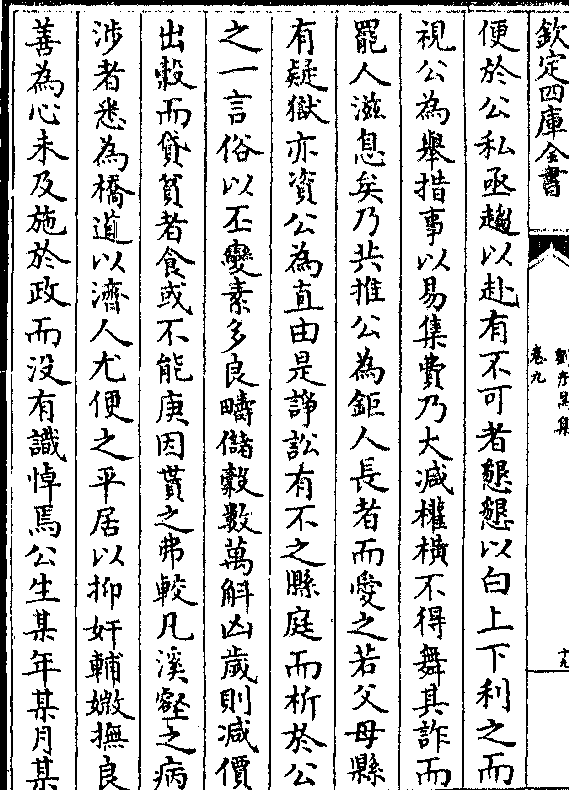 欽定四庫全書
卷九
便於公私亟趨以赴有不可者懇懇以白上下利之而
視公為舉措事以易集費乃大減權橫不得舞其詐而
罷人滋息矣乃共推公為鉅人長者而愛之若父母縣
有疑獄亦資公為直由是諍訟有不之縣庭而析於公
之一言俗以丕變素多良疇儲穀數萬斛凶歲則減價
出穀而貸貧者食或不能庚因貰之弗較凡溪壑之病
涉者悉為橋道以濟人尤便之平居以抑奸輔媺撫良
善為心未及施於政而没有識悼焉公生某年某月某